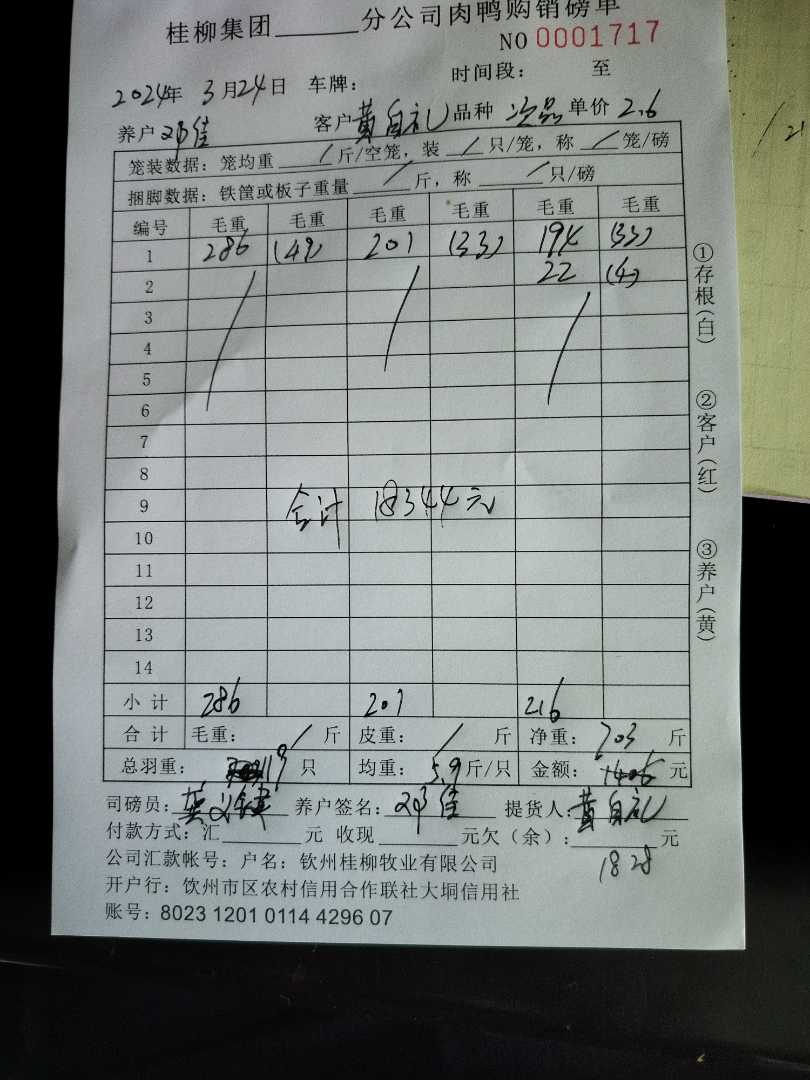 桂柳集团______分公司肉鸭购销磅单
NO 0001717
时间段： 至
2024年 3月24日 车牌：
养户 邓佳 客户 黄自礼 品种 次品 单价 2.6
笼装数据：笼均重 / 斤/空笼，装 / 只/笼，称 / 笼/磅
捆脚数据：铁筐或板子重量 / 斤，称 / 只/磅
编号 毛重 毛重 毛重 毛重 毛重 毛重
1 286 (49) 201 (33) 194 (33)
2 22 (4)
3
4
5
6
7
8
9 合计 18344元
10
11
12
13
14
小计 286 201 216
合计 毛重： / 斤 皮重： / 斤 净重：703 斤
总羽重： 119 只 均重：5.9斤/只 金额： 元
司磅员： 养户签名：邓佳 提货人：黄自礼
付款方式：汇______元 收现______元欠（余）：______元
1828
公司汇款帐号：户名：钦州桂柳牧业有限公司
开户行：钦州市区农村信用合作联社大垌信用社
账号：8023 1201 0114 4296 07
①存根(白) ②客户(红) ③养户(黄)